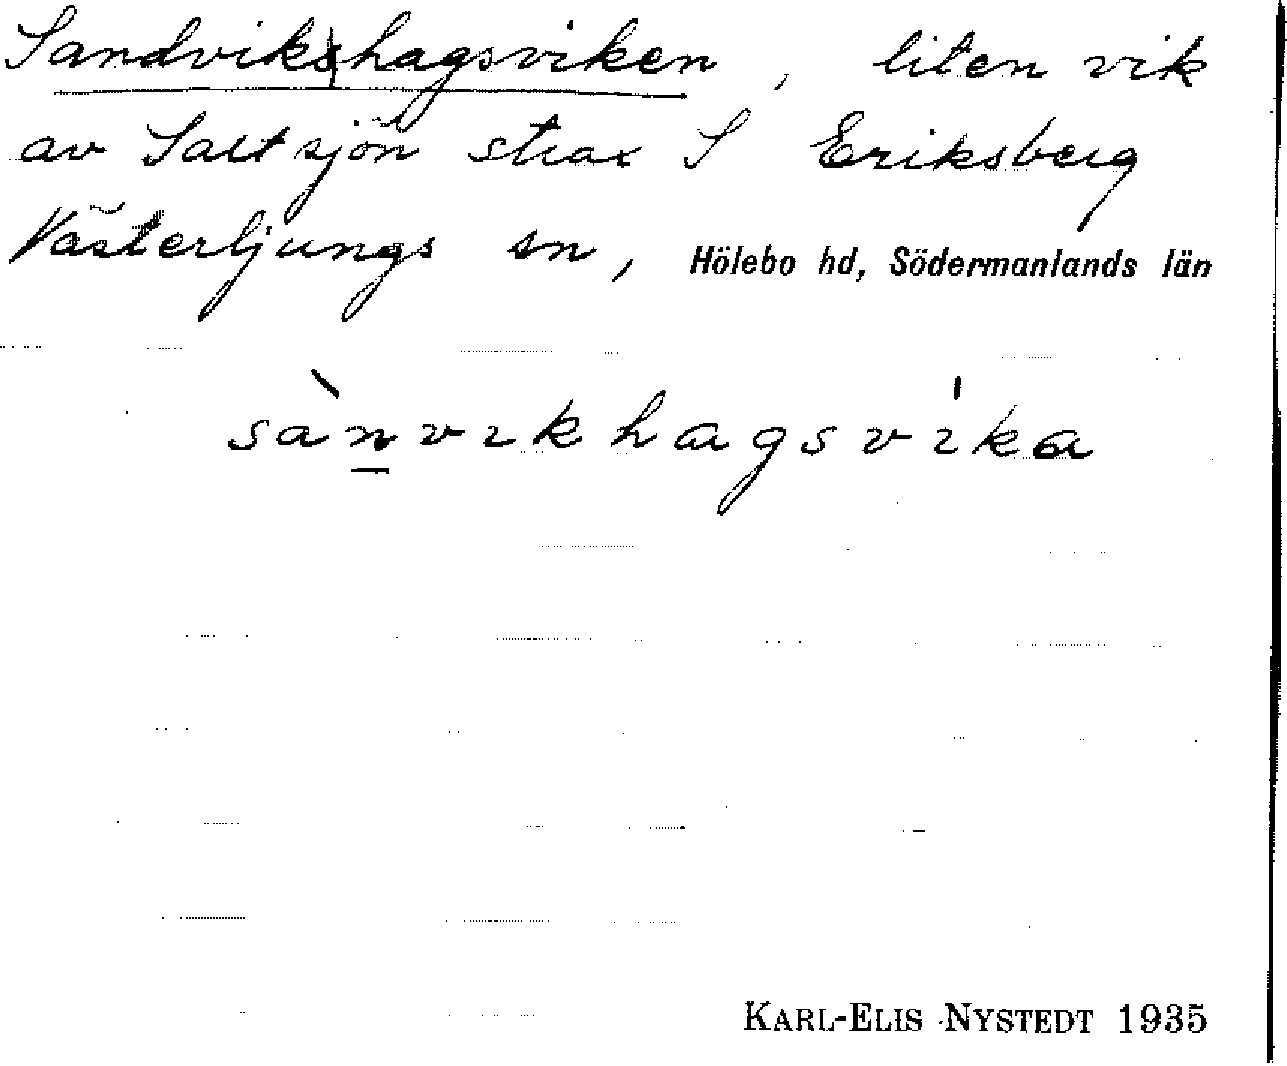 Sandvikshagsviken, liten vik
av Saltsjön strax S Eriksberg
Västerljungs sn, Hölebo hd, Södermanlands län
sànvikhagsvika
KARL-ELIS NYSTEDT 1935